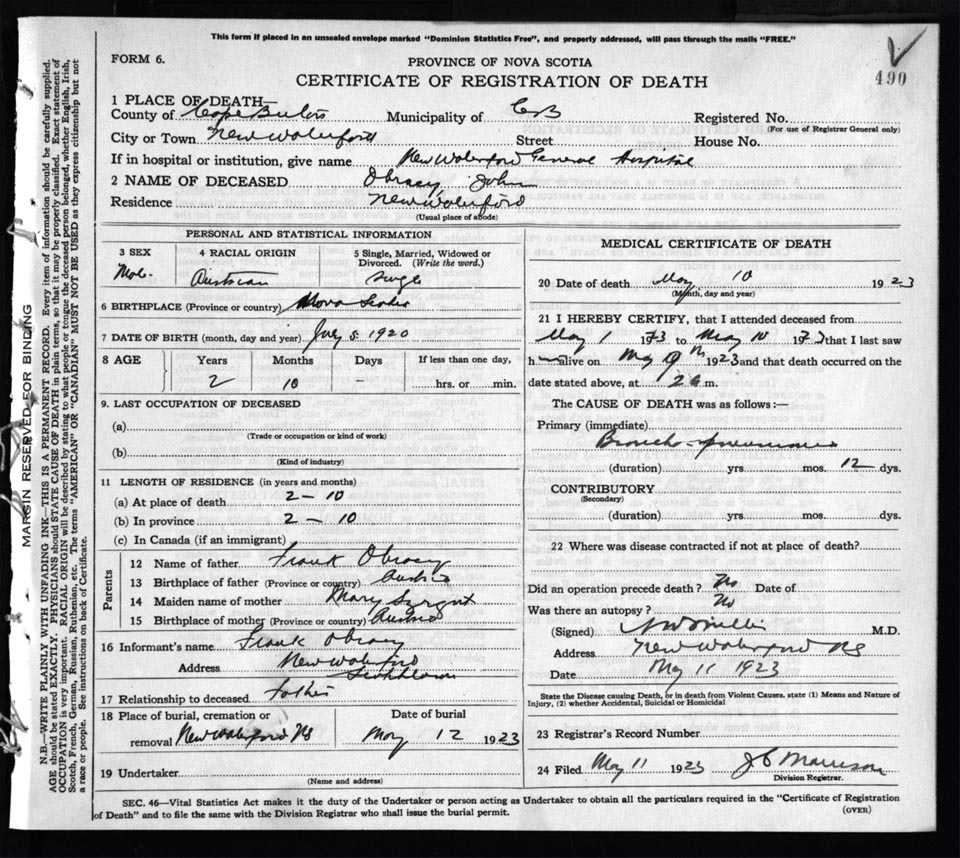 This form if placed in an unsealed envelope marked "Dominion Statistics Free", and properly addressed, will pass through the mails "FREE."
FORM 6.
PROVINCE OF NOVA SCOTIA
490
CERTIFICATE OF REGISTRATION OF DEATH
1 PLACE OF DEATH—
County of Cape Breton Municipality of CB Registered No.
(For use of Registrar General only)
City or Town New Waterford Street House No.
If in hospital or institution, give name New Waterford General Hospital
2 NAME OF DECEASED Obracy John
Residence New Waterford
(Usual place of abode)
PERSONAL AND STATISTICAL INFORMATION
3 SEX 4 RACIAL ORIGIN 5 Single, Married, Widowed or Divorced. (Write the word.)
Male Austrian Single
6 BIRTHPLACE (Province or country) Nova Scotia
7 DATE OF BIRTH (month, day and year) July 5 1920
8 AGE Years Months Days If less than one day,
2 10 – hrs. or min.
9. LAST OCCUPATION OF DECEASED
(a)
(Trade or occupation or kind of work)
(b)
(Kind of industry)
11 LENGTH OF RESIDENCE (in years and months)
(a) At place of death 2 – 10
(b) In province 2 – 10
(c) In Canada (if an immigrant)
Parents
12 Name of father Frank Obracy
13 Birthplace of father (Province or country) Austria
14 Maiden name of mother Mary
15 Birthplace of mother (Province or country) Austria
16 Informant's name Frank Obracy
Address New Waterford
Scotchtown
17 Relationship to deceased father
18 Place of burial, cremation or removal New Waterford NS
Date of burial
May 12 1923
19 Undertaker
(Name and address)
MEDICAL CERTIFICATE OF DEATH
20 Date of death May 10 1923
(Month, day and year)
21 I HEREBY CERTIFY, that I attended deceased from
May 1 1923 to May 10 1923 that I last saw
h im alive on May 9th 1923 and that death occurred on the
date stated above, at 2 a m.
The CAUSE OF DEATH was as follows:—
Primary (immediate)
Broncho-pneumonia
(duration) yrs. mos. 12 dys.
CONTRIBUTORY
(Secondary)
(duration) yrs. mos. dys.
22 Where was disease contracted if not at place of death?
Did an operation precede death? No Date of
Was there an autopsy? No
(Signed) M.D.
Address New Waterford NS
Date May 11 1923
State the Disease causing Death, or in death from Violent Causes, state (1) Means and Nature of
Injury, (2) whether Accidental, Suicidal or Homicidal
23 Registrar's Record Number
24 Filed May 11 1923 J C Morrison
Division Registrar.
SEC. 46—Vital Statistics Act makes it the duty of the Undertaker or person acting as Undertaker to obtain all the particulars required in the "Certificate of Registration
of Death" and to file the same with the Division Registrar who shall issue the burial permit.
(OVER)
MARGIN RESERVED FOR BINDING
N.B.—WRITE PLAINLY WITH UNFADING INK—THIS IS A PERMANENT RECORD. Every item of information should be carefully supplied.
AGE should be stated EXACTLY. PHYSICIANS should STATE CAUSE OF DEATH in plain terms, so that it may be properly classified. Exact statement of
OCCUPATION is very important. RACIAL ORIGIN will be described by stating to what people or tongue the deceased person belonged, whether English, Irish,
Scotch, French, German, Russian, Ruthenian, etc. The terms "AMERICAN" OR "CANADIAN" MUST NOT BE USED as they express citizenship but not
a race or people. See instructions on back of Certificate.